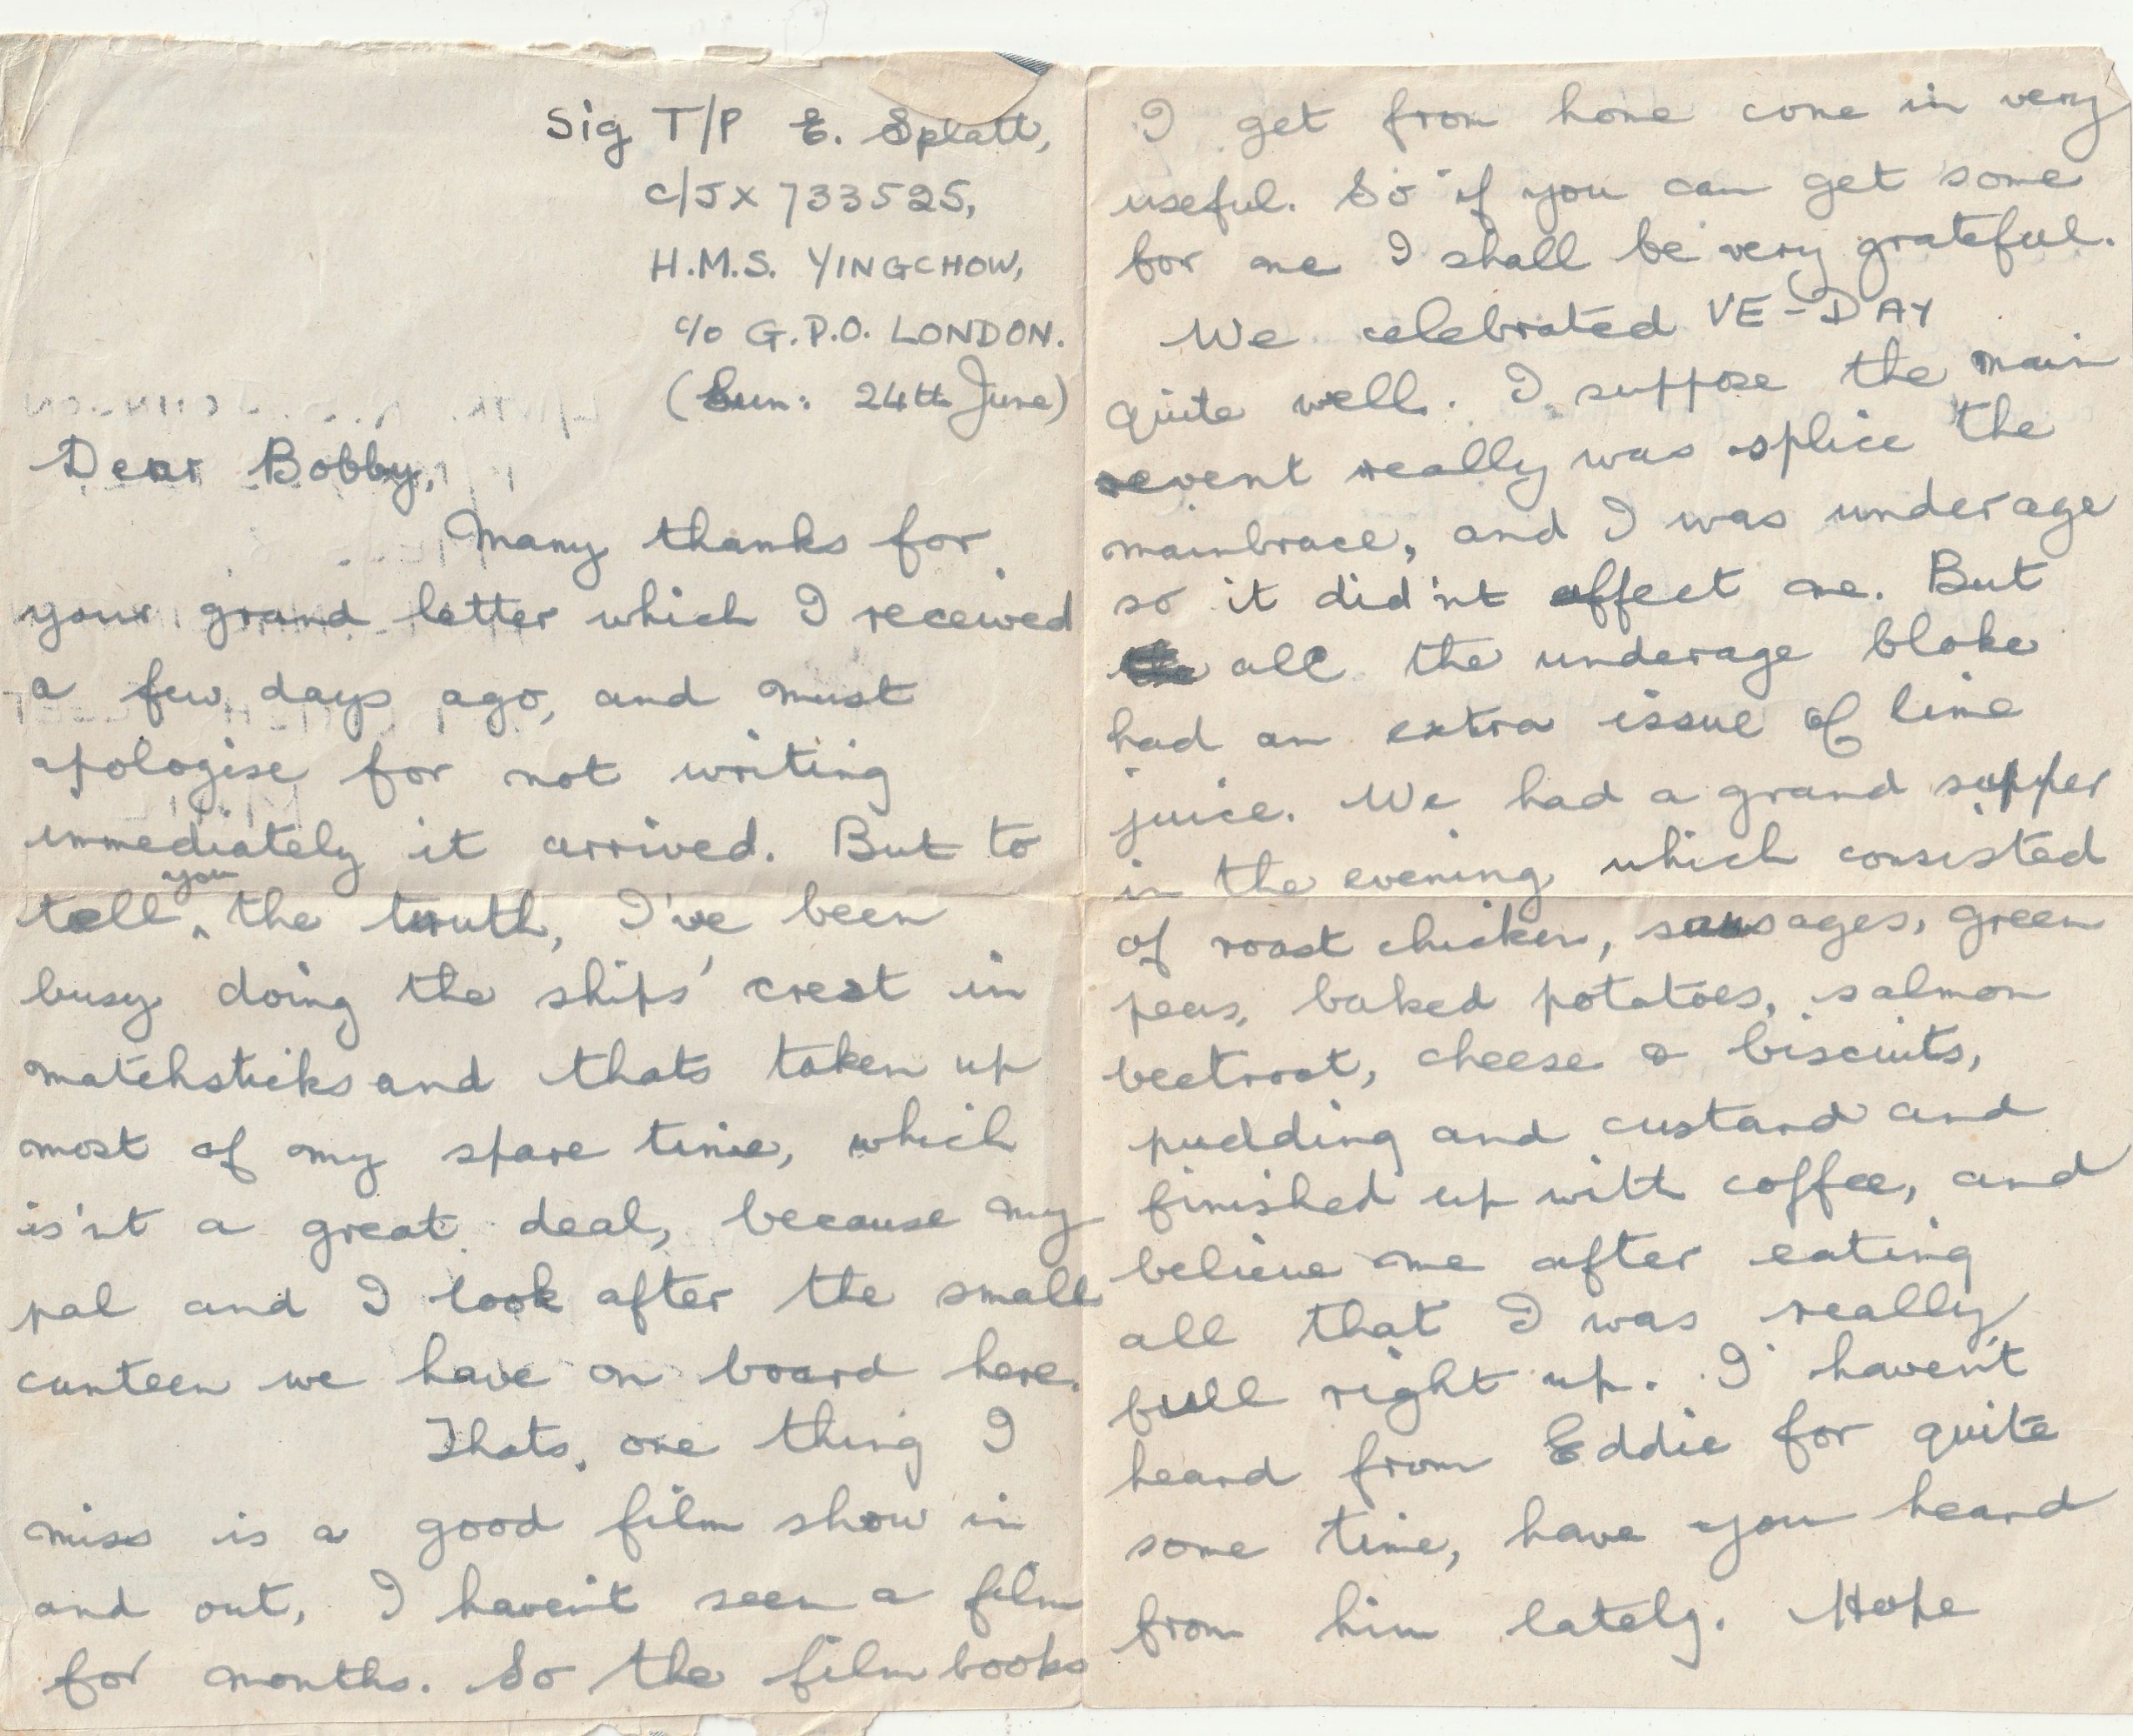 Sig T/P E. Splatt,
C/JX 733525,
H.M.S. YINGCHOW,
c/o G.P.O. LONDON.
(Sun: 24th June)
Dear Bobby,
Many thanks for
your grand letter which I received
a few days ago, and must
apologise for not writing
immediately it arrived. But to
tell you the truth, I've been
busy doing the ships' crest in
matchsticks and thats taken up
most of my spare time, which
is'nt a great deal, because my
pal and I look after the small
canteen we have on board here.
Thats one thing I
miss is a good film show in
and out, I haven't seen a film
for months. So the film books
I get from home come in very
useful. So if you can get some
for me I shall be very grateful.
We celebrated VE-DAY
quite well. I suppose the main
event really was splice the
mainbrace, and I was underage
so it did'nt affect me. But
all the underage bloke
had an extra issue of lime
juice. We had a grand supper
in the evening which consisted
of roast chicken, sausages, green
peas, baked potatoes, salmon
beetroot, cheese & biscuits,
pudding and custard and
finished up with coffee, and
believe me after eating
all that I was really
full right up. I haven't
heard from Eddie for quite
some time, have you heard
from him lately. Hope